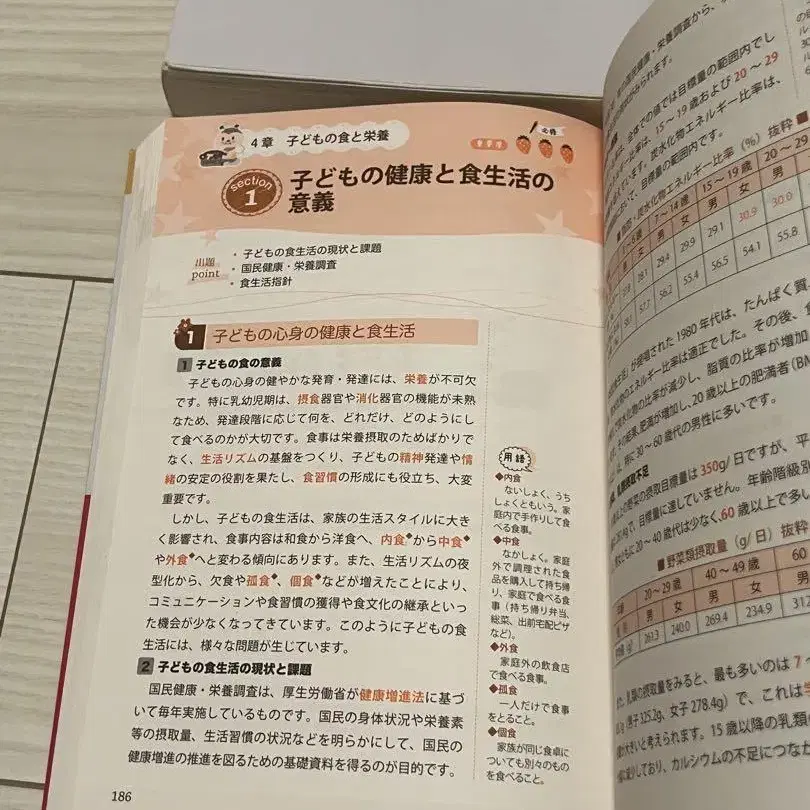 4章 子どもの食と栄養
必修
section
1
子どもの健康と食生活の
意義
出題
point
・子どもの食生活の現状と課題
・国民健康・栄養調査
・食生活指針
1 子どもの心身の健康と食生活
1 子どもの食の意義
子どもの心身の健やかな発育・発達には、栄養が不可欠
です。特に乳幼児期は、摂食器官や消化器官の機能が未熟
なため、発達段階に応じて何を、どれだけ、どのようにし
て食べるのかが大切です。食事は栄養摂取のためばかりで
なく、生活リズムの基盤をつくり、子どもの精神発達や情
緒の安定の役割を果たし、食習慣の形成にも役立ち、大変
重要です。
しかし、子どもの食生活は、家族の生活スタイルに大き
く影響され、食事内容は和食から洋食へ、内食◆から中食◆
や外食◆へと変わる傾向にあります。また、生活リズムの夜
型化から、欠食や孤食◆、個食◆などが増えたことにより、
コミュニケーションや食習慣の獲得や食文化の継承といっ
た機会が少なくなってきています。このように子どもの食
生活には、様々な問題が生じています。
2 子どもの食生活の現状と課題
国民健康・栄養調査は、厚生労働省が健康増進法に基づ
いて毎年実施しているものです。国民の身体状況や栄養素
等の摂取量、生活習慣の状況などを明らかにして、国民の
健康増進の推進を図るための基礎資料を得るのが目的です。
186
用語
◆内食
ないしょく、うち
しょくともいう。家
庭内で手作りして食
べる食事。
◆中食
なかしょく。家庭
外で調理された食
品を購入して持ち帰
り、家庭で食べる食
事（持ち帰り弁当、
総菜、出前宅配ピザ
など）。
◆外食
家庭外の飲食店
で食べる食事。
◆孤食
一人だけで食事
をとること。
◆個食
家族が同じ食卓に
ついても別々のもの
を食べること。
国民健康・栄養調査から、
全体での値では目標量の範囲内でし
ギー比率は、15～19歳および20～29
えています。炭水化物エネルギー比率は、
目標量の範囲内です。
物エネルギー比率（%）抜粋
7～14歳 15～19歳 20～29
男 女 男 女 男
28.1 29.4 29.9 29.1 30.9 30.0
57.7 56.2 55.4 56.5 54.1 55.8
が提唱された1980年代は、たんぱく質、
のエネルギー比率は適正でした。その後、
物の比率が減少し、脂質の比率が増加
肥満が増加し、20歳以上の肥満者（BM
特に30～60歳代の男性に多いです。
乳類摂取不足
の野菜の摂取目標量は350g/日ですが、平
目標量に達していません。年齢階級別
ともに20～40歳代は少なく、60歳以上で多い
■野菜類摂取量（g/日）抜粋
20～29歳 40～49歳 60
男 女 男 女 男
261.3 240.0 269.4 234.9
乳類の摂取量をみると、最も多いのは7～
（男子325.2g、女子278.4g）で、これは
が大きいと考えられます。15歳以降の乳類
に減少しており、カルシウムの不足につなが